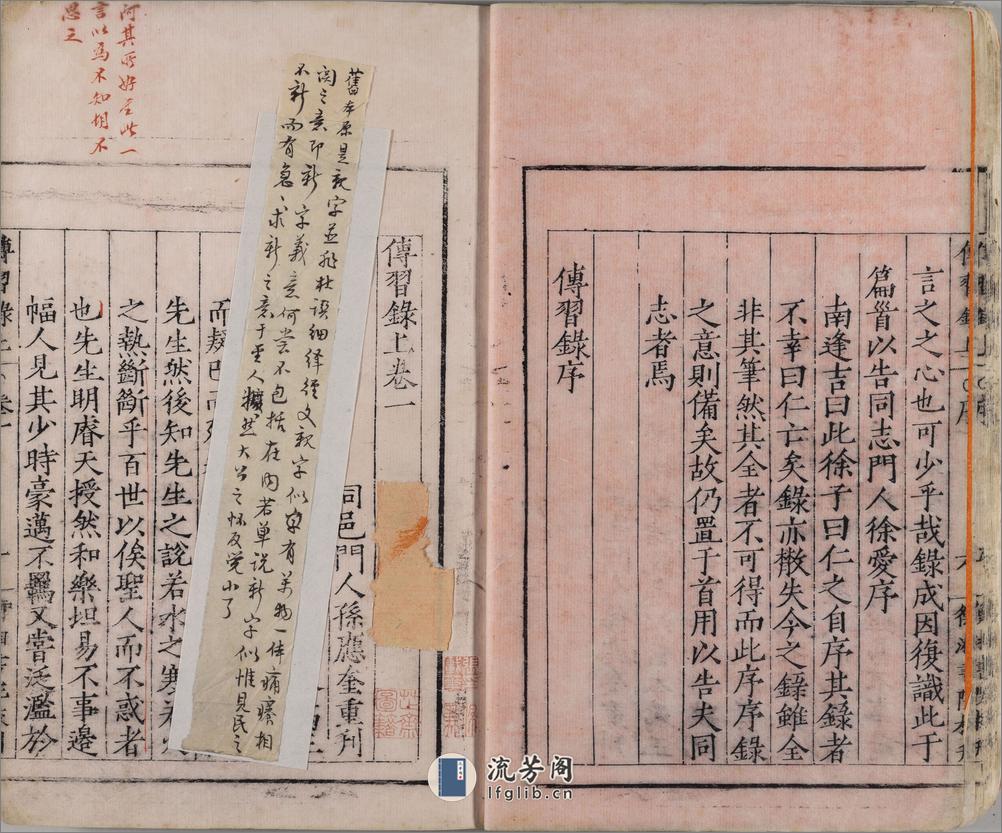 言之之心也可少乎哉錄成因復識此于
篇首以告同志門人徐愛序
南逢吉曰此徐子曰仁之自序其錄者
不幸曰仁亡矣錄亦散失今之錄雖全
非其筆然其全者不可得而此序序錄
之意則備矣故仍置于首用以告夫同
志者焉
傳習錄序
傳習錄上卷一
同邑門人孫應奎重刊
舊本原是親字並非杜譔細繹經文親字似宲有萬物一体痛癢相
関之意即新字義意何嘗不包括在內若单说新字似惟見民之
不新而有急〻求新之意于聖人擴然大公之怀反觉小了
先生然後知先生之說若水之寒
之熱斷斷乎百世以俟聖人而不惑者
也先生明睿天授然和樂坦易不事邊
幅人見其少時豪邁不羈又嘗泛濫於
何其所好至此一
言以為不知
思之
流芳阁
lfglib.cn